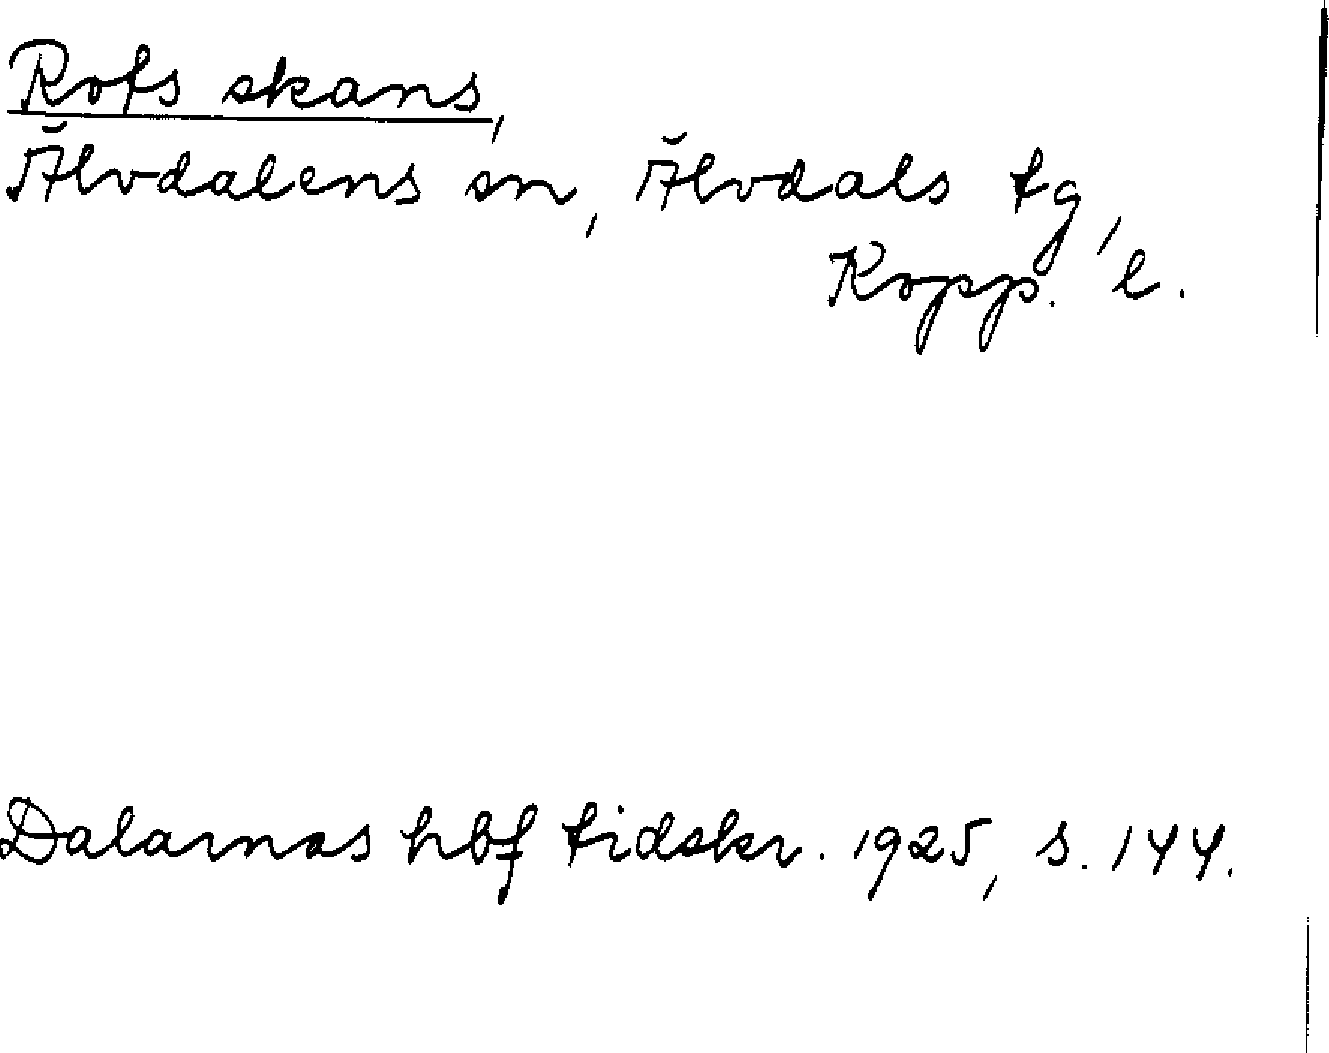 Rofs skans,
Älvdalens sn, Älvdals tg,
Kopp. l.
Dalarnas hbf tidskr. 1925, s. 144.